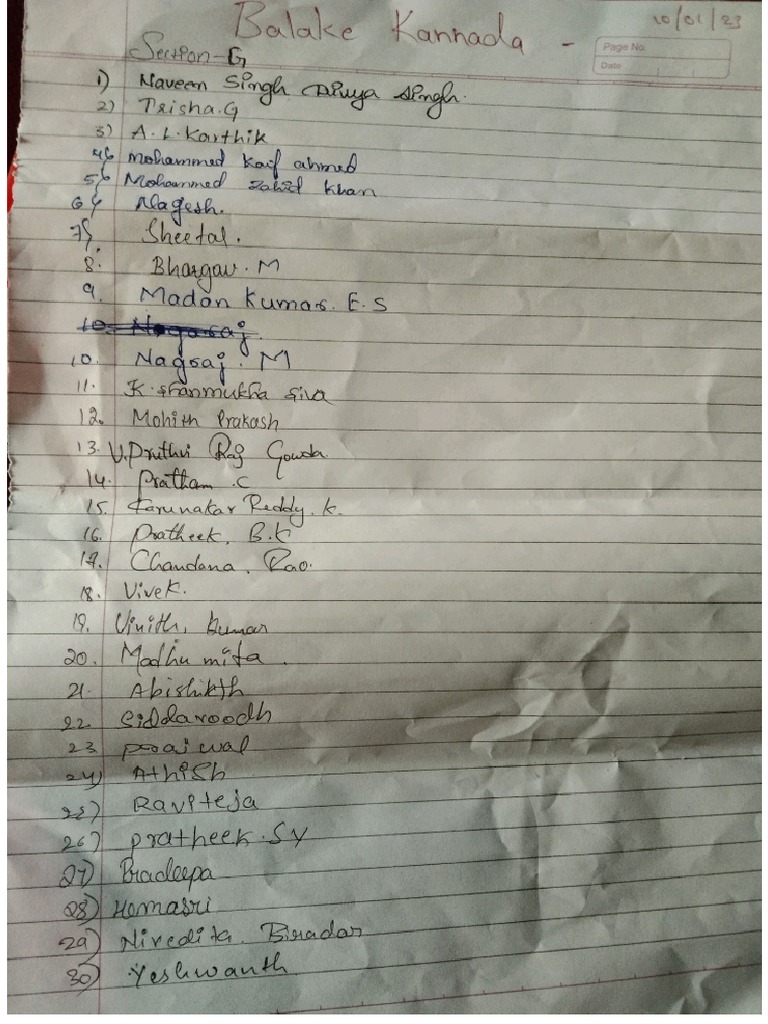 Balake Kannada - 10/01/23
Page No.
Date
Section-G
1) Naveen Singh Divya Singh.
2) Trisha.G
3) A.L.Karthik
4) Mohammed Kaif ahmed
5) Mohammed Zahid Khan
6) Nagesh.
7) Sheetal.
8. Bhargav. M
9. Madan Kumar. E.S
10. Nagaraj.
10. Nagraj. M
11. K. Shanmukha Siva
12. Mohith Prakash
13. V.Pruthvi Raj Gowda
14. Pratham .C
15. Karunakar Reddy. K.
16. Pratheek. B.K
17. Chandana. Rao.
18. Vivek.
19. Vinith, Kumar
20. Madhu mita .
21. Abishikth
22. Siddaroodh
23
24) Athish
25) Raviteja
26) Pratheek.SY
27) Pradeepa
28) Homasri
29) Nivedita. Biradar
30) Yeshwanth